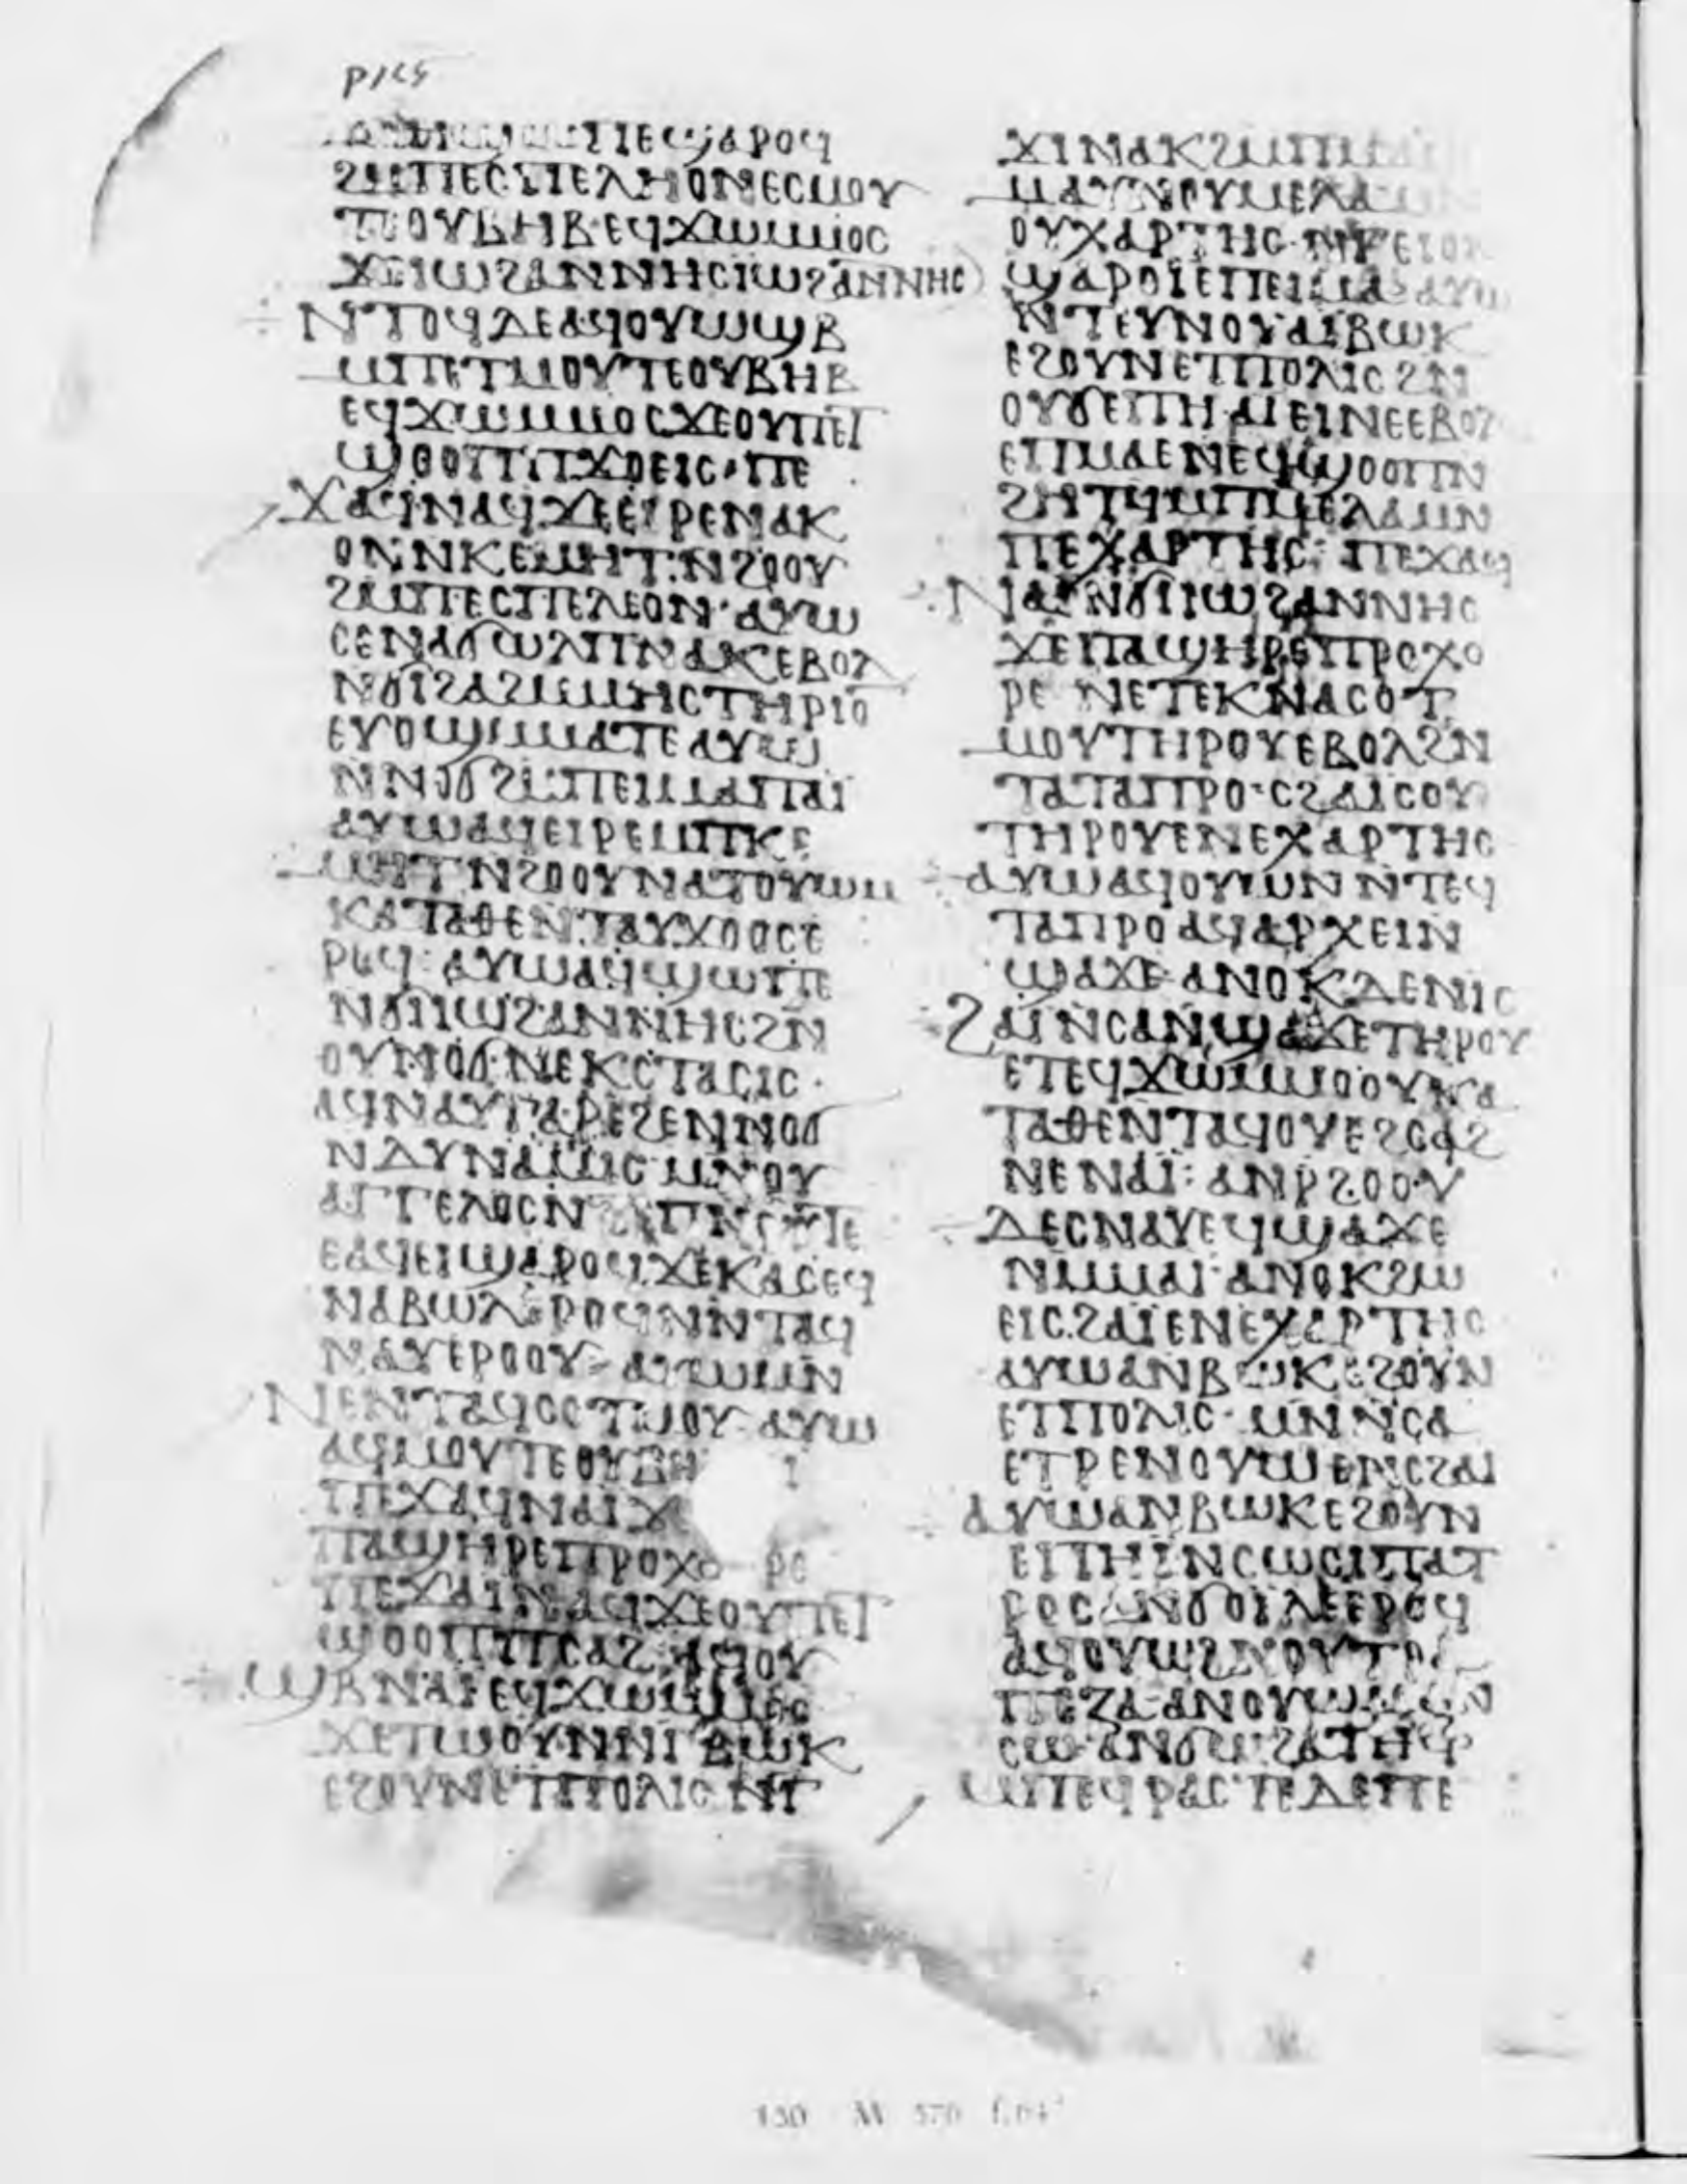 ϣⲁⲣⲟϥ
ϩⲙⲡⲉⲥⲡⲉⲗⲏⲟⲛⲉⲥⲙⲟⲩ
ⲧⲉⲟⲩⲃⲏⲃ·ⲉϥϫⲱⲙⲙⲟⲥ
ϫⲉⲓⲱϩⲁⲛⲛⲏⲥⲓⲱϩⲁⲛⲛⲏⲥ
ⲛⲧⲟϥⲇⲉⲁϥⲟⲩⲱϣⲃ
ⲙⲡⲉⲧⲙⲟⲩⲧⲉⲟⲩⲃⲏⲃ
ⲉϥϫⲱⲙⲙⲟⲥϫⲉⲟⲩⲡⲉⲧ
ϣⲟⲟⲡⲡϫⲟⲉⲓⲥ·ⲡⲉ
ϫⲁϥⲛⲁϥϫⲉⲉⲓⲣⲉⲛⲁⲕ
ⲟⲛⲛⲕⲉⲙⲏⲧ·ⲛϩⲟⲟⲩ
ϩⲙⲡⲉⲥⲡⲉⲗⲉⲟⲛ·ⲁⲩⲱ
ⲥⲉⲛⲁϭⲱⲗⲡⲛⲁⲕⲉⲃⲟⲗ
ⲛϭⲓϩⲁϩⲙⲙⲏⲥⲧⲏⲣⲓⲟ
ⲉⲩⲟϣⲙⲙⲁⲧⲉⲁⲩⲱ
ⲛⲛⲟϭϩⲙⲡⲉⲓⲙⲁⲡⲁⲓ
ⲁⲩⲱⲁϥⲉⲓⲣⲉⲙⲡⲕⲉ
ⲙⲏⲧⲛϩⲟⲟⲩⲛⲁⲧⲟⲩⲱⲙ
ⲕⲁⲧⲁⲑⲉⲛⲧⲁⲩϫⲟⲟⲥⲉ
ⲣⲟϥ·ⲁⲩⲱⲁϥϣⲱⲡⲉ
ⲛϭⲓⲓⲱϩⲁⲛⲛⲏⲥϩⲛ
ⲟⲩⲛⲟϭⲛⲉⲕⲥⲧⲁⲥⲓⲥ·
ⲁϥⲛⲁⲩⲅⲁⲣⲉϩⲉⲛⲛⲟϭ
ⲛⲇⲩⲛⲁⲙⲓⲥ·ⲙⲛⲟⲩ
ⲁⲅⲅⲉⲗⲟⲥⲛ
ⲉⲁϥⲉⲓϣⲁⲣⲟϥϫⲉⲕⲁⲥⲉϥ
ⲛⲁⲃⲱⲗⲉⲣⲟϥⲛⲛⲧⲁϥ
ⲛⲁⲩⲉⲣⲟⲟⲩ·ⲁⲩⲱⲙⲛ
ⲛⲉⲛⲧⲁϥⲥⲟⲧⲙⲟⲩ·ⲁⲩⲱ
ⲁϥⲙⲟⲩⲧⲉⲟⲩⲃⲏ
ⲡⲉϫⲁϥⲛⲁⲓϫ
ⲡⲁϣⲏⲣⲉⲡⲣⲟⲭⲟⲣⲉ
ⲡⲉϫⲁⲓⲛⲁϥϫⲉⲟⲩⲡⲉⲧ
ϣⲟⲟⲡⲡⲥⲁϩ·ⲁϥⲟⲩ
ϣⲃⲛⲁⲓⲉϥϫⲱⲙⲙⲟⲥ
ϫⲉⲧⲱⲟⲩⲛⲛⲅⲃⲱⲕ
ⲉϩⲟⲩⲛⲉⲧⲡⲟⲗⲓⲥ·ⲛⲅ
ϫⲓⲛⲁⲕϩⲙⲡⲙⲁ
ⲙⲁⲩⲛⲟⲩⲙⲉⲗⲁ
ⲟⲩⲭⲁⲣⲧⲏⲥ·
ϣⲁⲣⲟⲓⲉⲡⲉⲓⲙⲁ·ⲁⲩⲱ
ⲛⲧⲉⲩⲛⲟⲩⲁⲓⲃⲱⲕ
ⲉϩⲟⲩⲛⲉⲧⲡⲟⲗⲓⲥϩⲛ
ⲟⲩϭⲉⲡⲏ·ⲁⲓⲉⲓⲛⲉⲉⲃⲟⲗ
ⲉⲡⲙⲁⲉⲛⲉϥϣⲟⲟⲡⲛ
ϩⲏⲧϥⲙⲡⲙⲉⲗⲁⲙⲛ
ⲡⲉⲭⲁⲣⲧⲏⲥ·ⲡⲉϫⲁϥ
ⲛⲁⲓⲛϭⲓⲓⲱϩⲁⲛⲛⲏⲥ
ϫⲉⲡⲁϣⲏⲣⲉⲡⲣⲟⲭⲟ
ⲣⲉ ⲛⲉⲧⲉⲕⲛⲁⲥⲟⲧ
ⲙⲟⲩⲧⲏⲣⲟⲩⲉⲃⲟⲗϩⲛ
ⲧⲁⲧⲁⲡⲣⲟ·ⲥϩⲁⲓⲥⲟⲩ
ⲧⲏⲣⲟⲩⲉⲛⲉⲭⲁⲣⲧⲏⲥ
ⲁⲩⲱⲁϥⲟⲩⲱⲛⲛⲧⲉϥ
ⲧⲁⲡⲣⲟⲁϥⲁⲣⲭⲉⲓⲛ
ϣⲁϫⲉ·ⲁⲛⲟⲕⲇⲉⲛⲓⲥ
ϩⲁⲓⲛⲥⲁⲛϣⲁϫⲉⲧⲏⲣⲟⲩ
ⲉⲧⲉϥϫⲱⲙⲙⲟⲟⲩⲕⲁ
ⲧⲁⲑⲉⲛⲧⲁϥⲟⲩⲉϩⲥⲁϩ
ⲛⲉⲛⲁⲓ:ⲁⲛⲣϩⲟⲟⲩ
ⲇⲉⲥⲛⲁⲩⲉϥϣⲁϫⲉ
ⲛⲙⲙⲁⲓ·ⲁⲛⲟⲕϩⲱ
ⲉⲓⲥϩⲁⲓⲉⲛⲉⲭⲁⲣⲧⲏⲥ
ⲁⲩⲱⲁⲛⲃⲱⲕⲉϩⲟⲩⲛ
ⲉⲧⲡⲟⲗⲓⲥ·ⲙⲛⲛⲥⲁ
ⲉⲧⲣⲉⲛⲟⲩⲱⲉⲛⲥϩⲁⲓ
ⲁⲩⲱⲁⲛⲃⲱⲕⲉϩⲟⲩⲛ
ⲉⲡⲏⲓⲛⲥⲱⲥⲓⲡⲁⲧ
ⲣⲟⲥⲁⲛϭⲟⲓⲗⲉⲉⲣⲟϥ
ⲁϥⲟⲩⲱϩⲛⲟⲩⲧⲣⲁ
ⲡⲉⲍⲁ·ⲁⲛⲟⲩⲱⲙⲁⲛ
ⲥⲱ·ⲁⲛϭⲱϩⲁⲧⲏϥ
ⲙⲡⲉϥⲣⲁⲥⲧⲉⲇⲉⲡⲉ